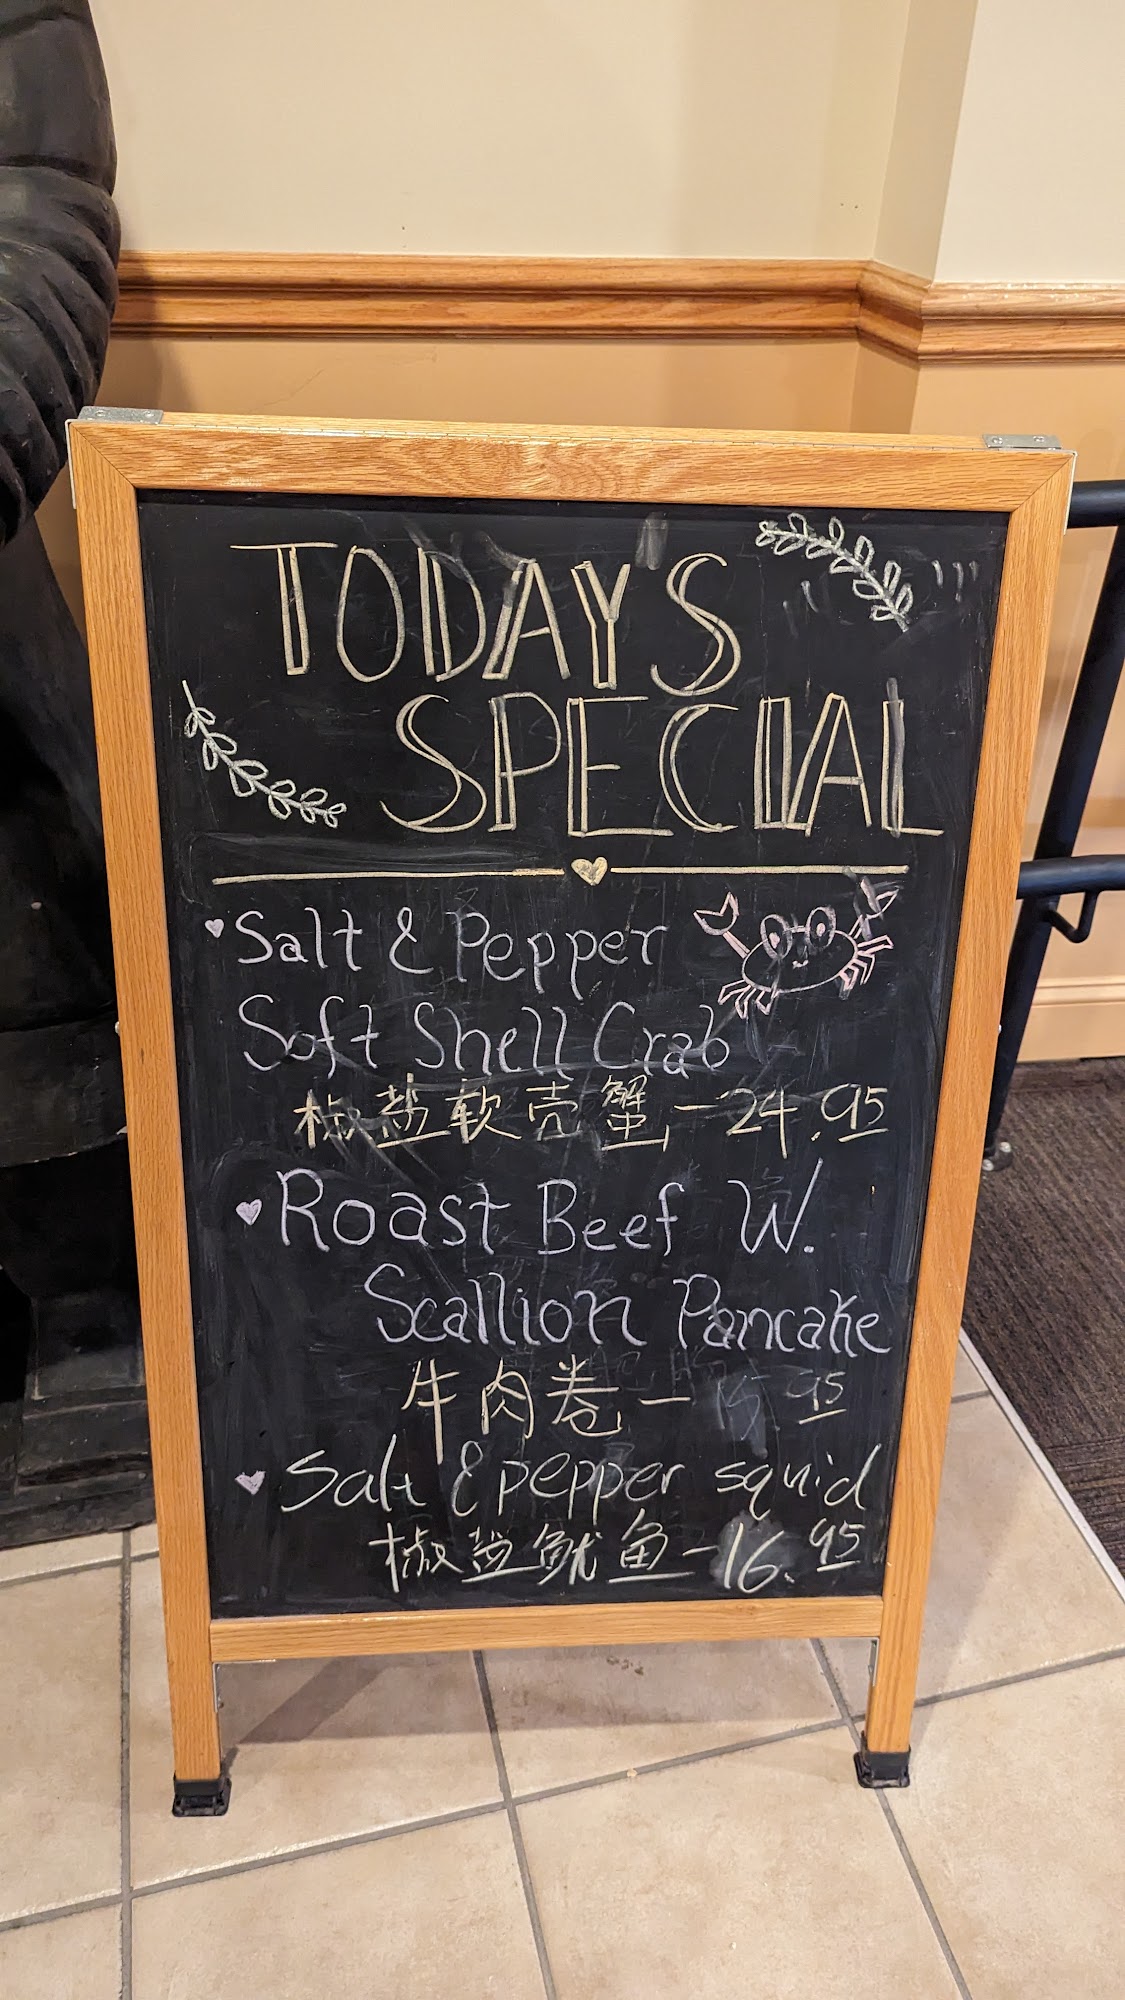 TODAY'S
SPECIAL
Salt & Pepper
Soft Shell Crab
椒盐软壳蟹 - 24.95
Roast Beef W.
Scallion Pancake
牛肉卷 - 15.95
Salt & pepper squid
椒盐鱿鱼 - 16.95